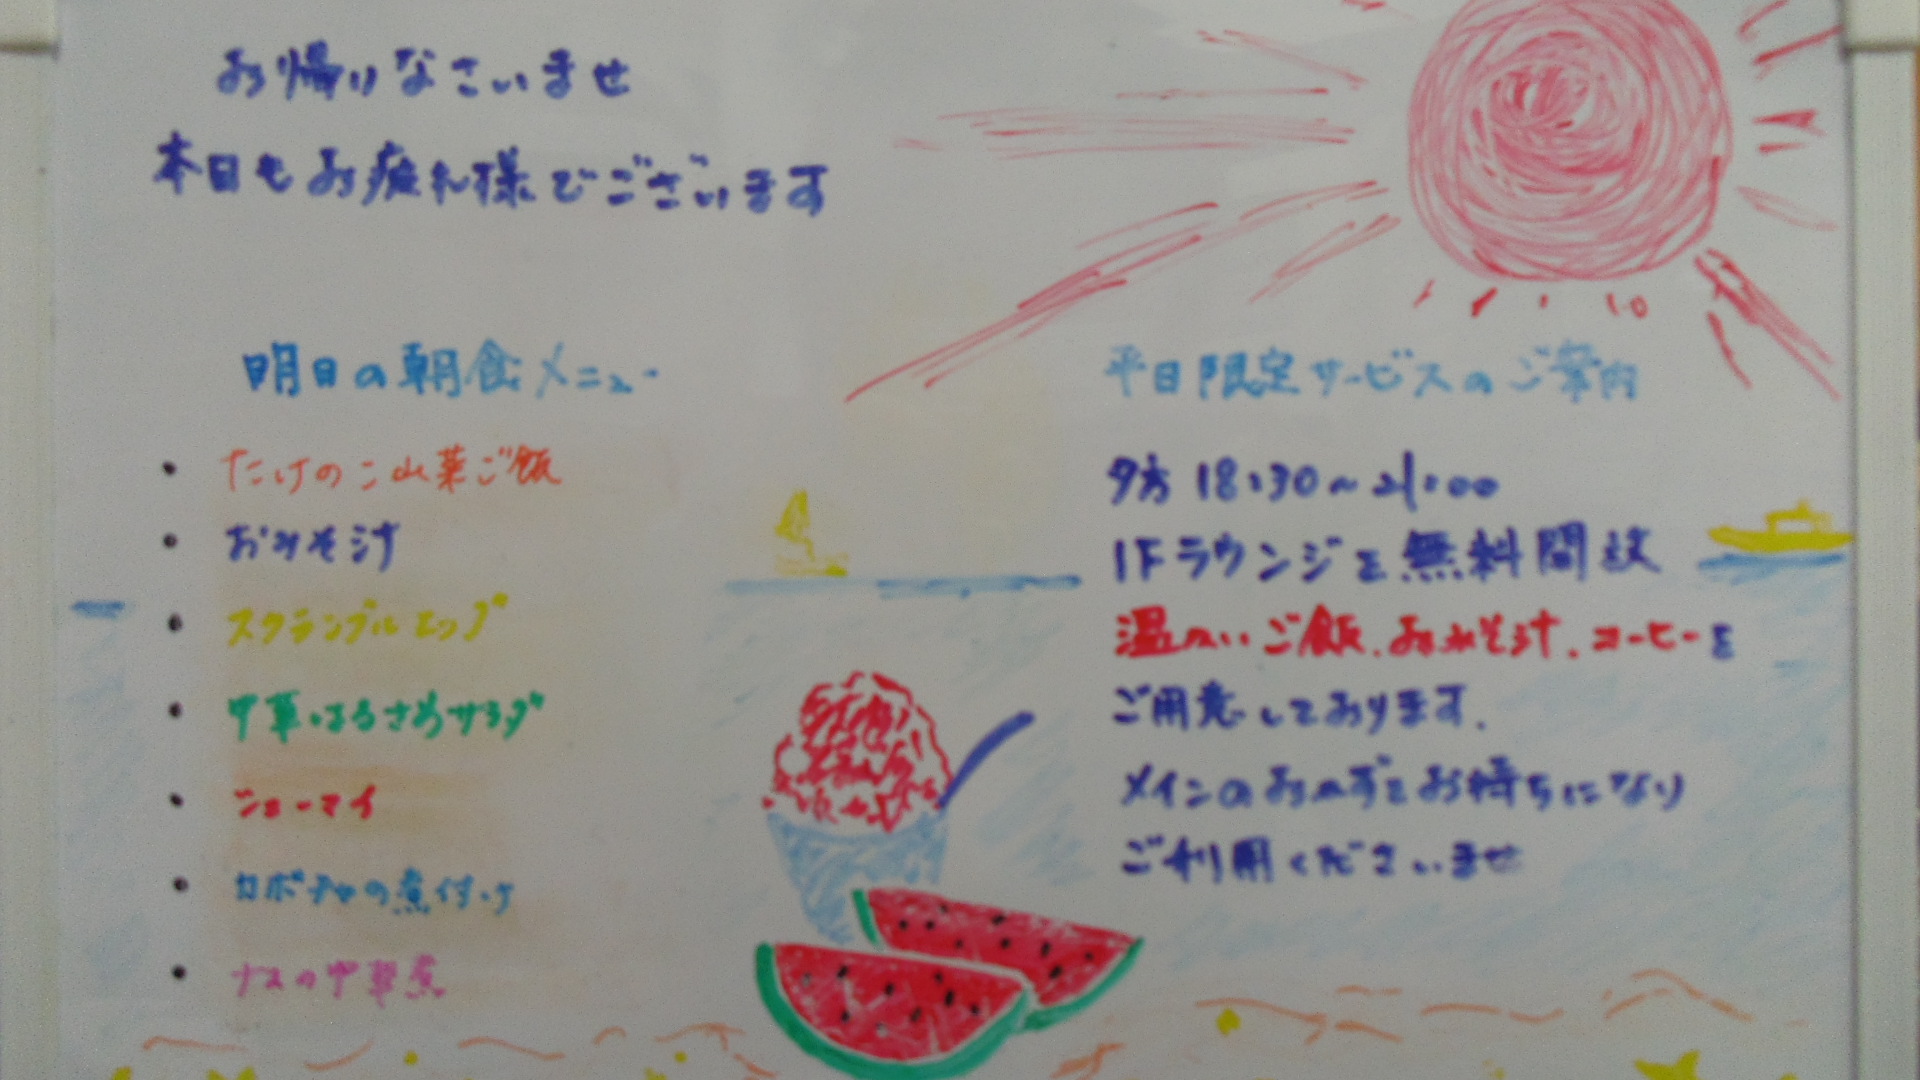 お帰りなさいませ
本日もお疲れ様でございます
明日の朝食メニュー
・たけのこ山菜ご飯
・おみそ汁
・スクランブルエッグ
・中華はるさめサラダ
・シューマイ
・カボチャの煮付け
・ナスの中華煮
平日限定サービスのご案内
夕方 18:30〜21:00
1Fラウンジを無料開放
温かいご飯、おみそ汁、コーヒーを
ご用意しております。
メインのおかずをお持ちになり
ご利用くださいませ